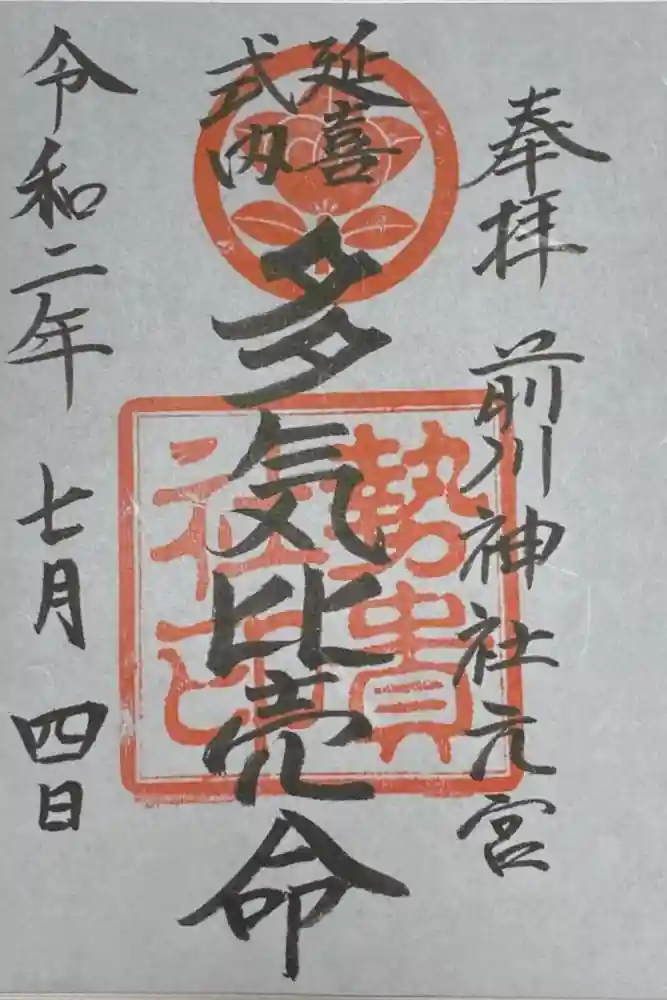 奉拝 前川神社元宮
延喜
式内
多気比売命
勢貴
社印
令和二年 七月 四日